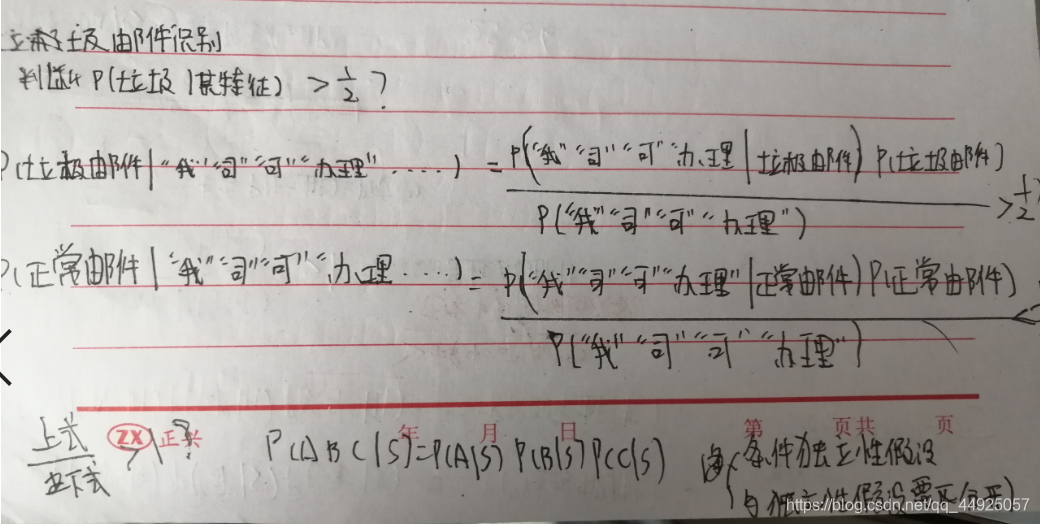 垃圾邮件识别
判断 P(垃圾|某特征) > 1/2 ?
P(垃极由件|"我""司""可""办理"....) = P("我""司""可""办理|垃极由件) P(垃圾由件) / P("我""司""可""办理") > 1/2?
P(正常由件|"我""司""可""办理....) = P("我""司""可""办理"|正常由件) P(正常由件) / P("我""司""可""办理")
ZX 正兴 年 月 日 第 页共 页
上式/下式 > 1 ? P(ABC|S)=P(A|S) P(B|S) P(C|S) 条件独立性假设
与独立性假设要区分开)
https://blog.csdn.net/qq_44925057